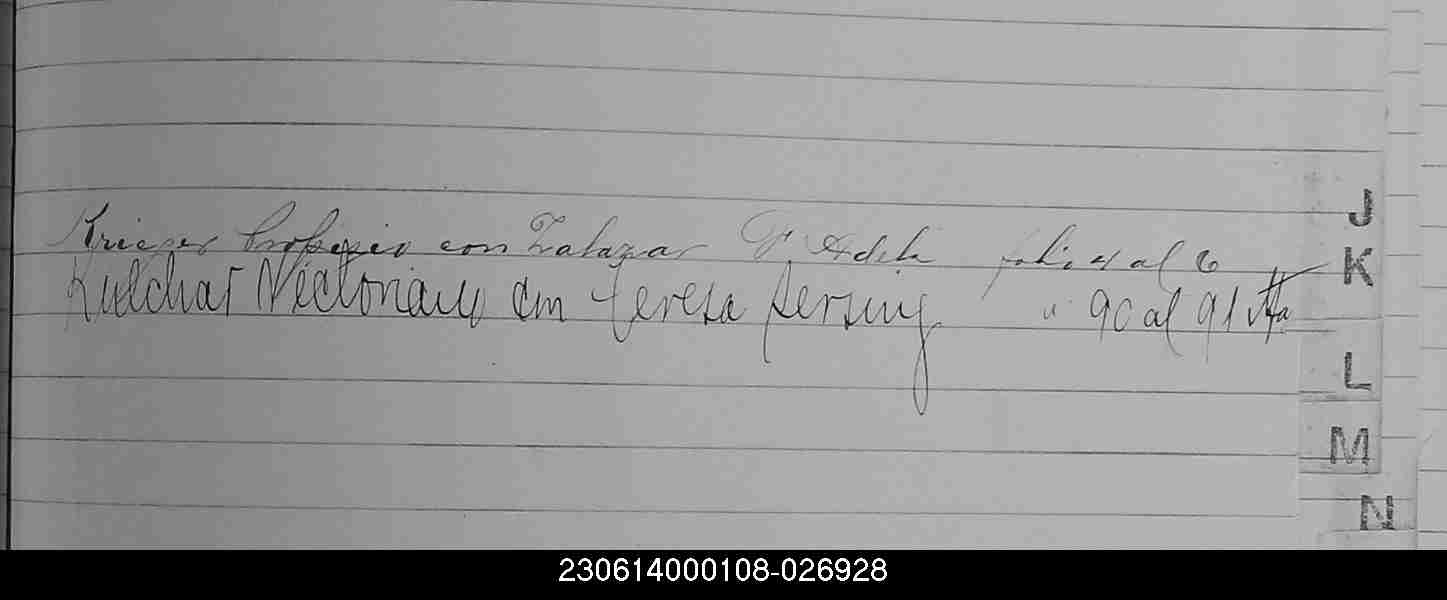 Krieger Profirio con Zalazar F. Adela folio 4 al 6
Kulchar Victoriano con Teresa Sersing " 90 al 91 vta
J
K
L
M
N
230614000108-026928